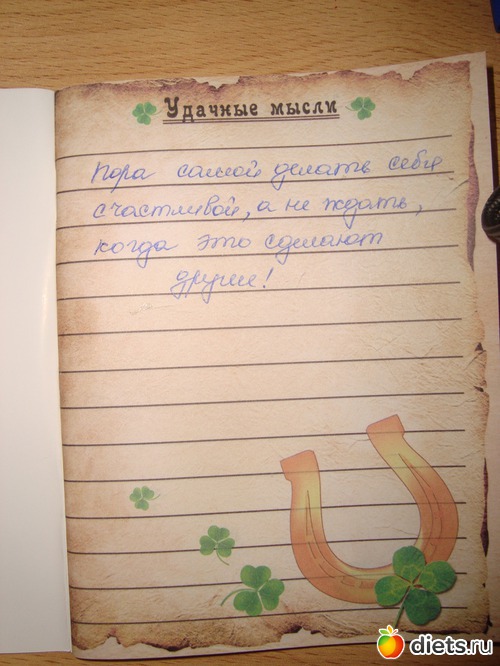 Удачные мысли
Пора самой делать себя
счастливой, а не ждать,
когда это сделают
другие!
diets.ru